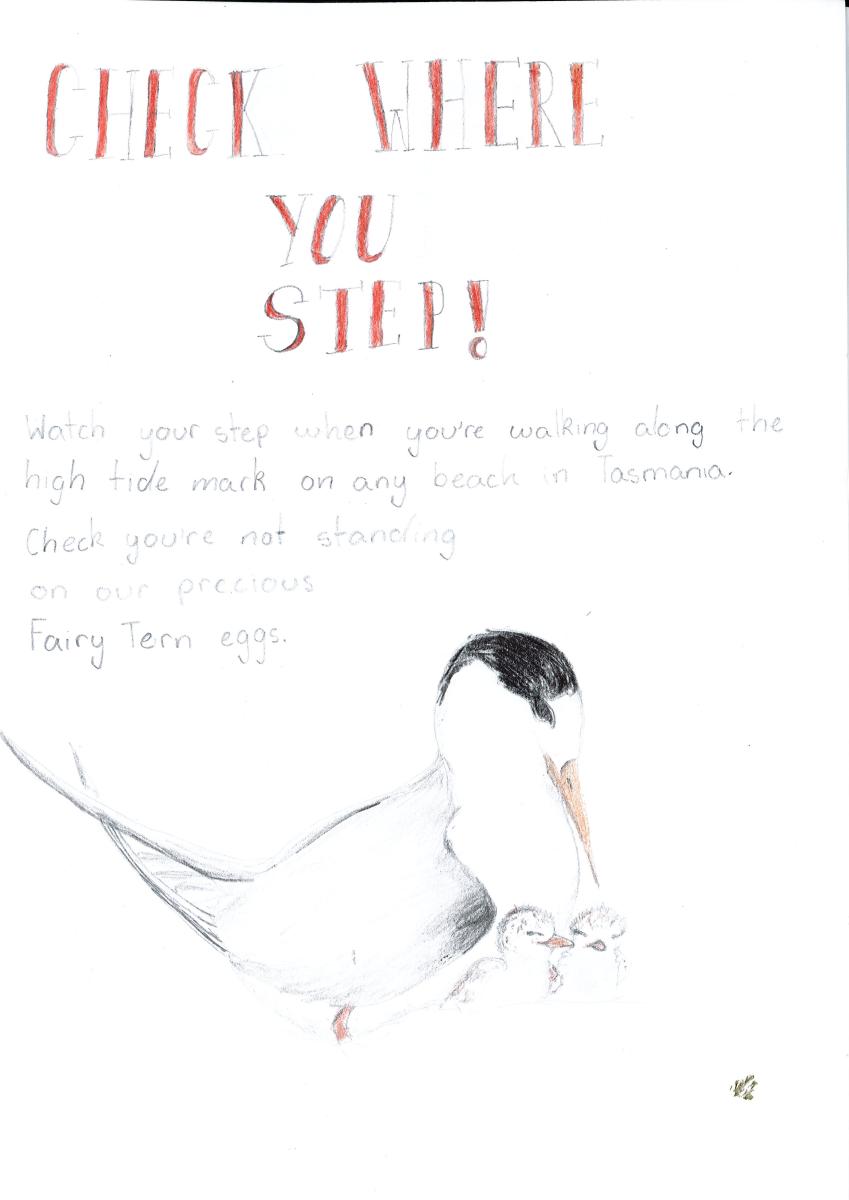 CHECK WHERE
YOU
STEP!
Watch your step when you're walking along the
high tide mark on any beach in Tasmania.
Check you're not standing
on our precious
Fairy Tern eggs.